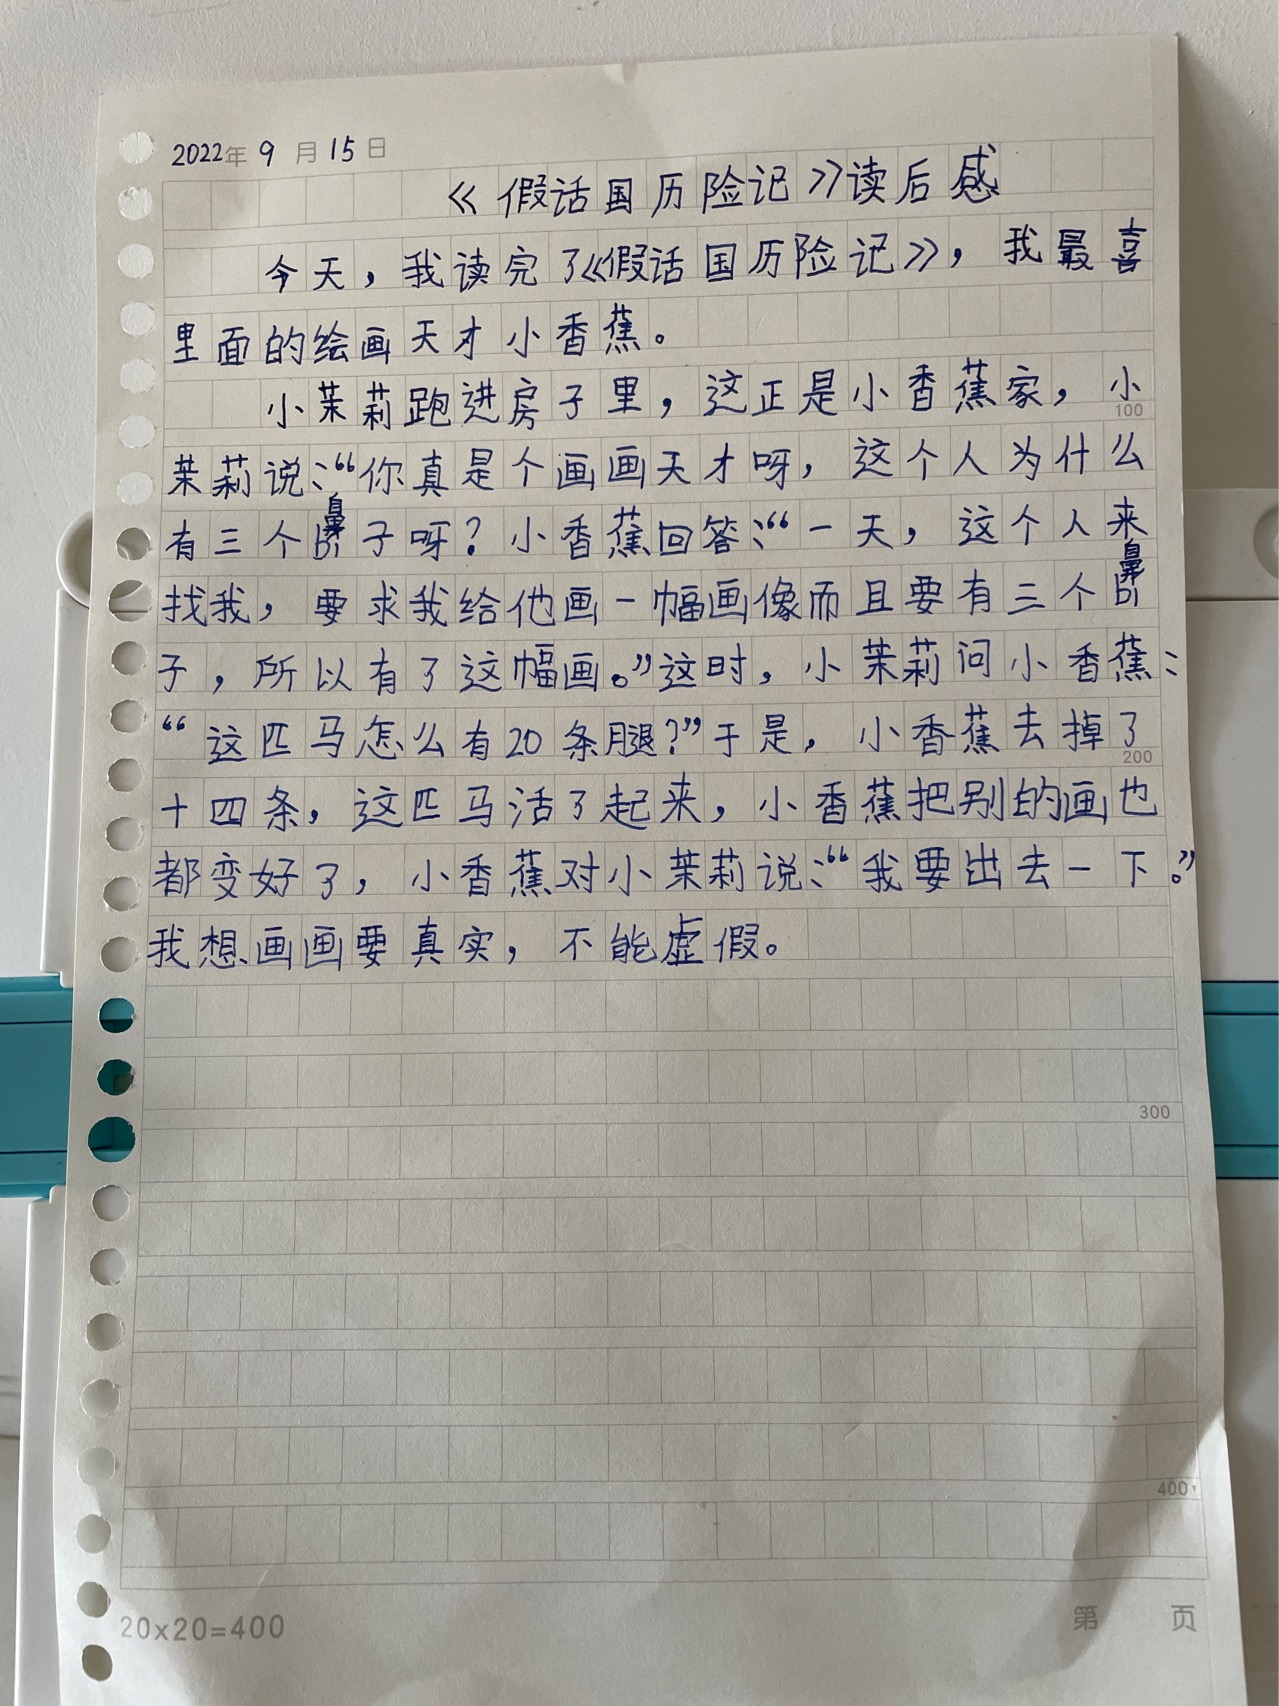 2022年 9 月 15 日
《假话国历险记》读后感
今天，我读完了《假话国历险记》，我最喜
里面的绘画天才小香蕉。
小茉莉跑进房子里，这正是小香蕉家，小
100
茉莉说：“你真是个画画天才呀，这个人为什么
有三个鼻子呀？小香蕉回答：“一天，这个人来
找我，要求我给他画一幅画像而且要有三个鼻
子，所以有了这幅画。”这时，小茉莉问小香蕉：
“这匹马怎么有20条腿？”于是，小香蕉去掉了
200
十四条，这匹马活了起来，小香蕉把别的画也
都变好了，小香蕉对小茉莉说：“我要出去一下。”
我想画画要真实，不能虚假。
300
400
20×20=400
第 页